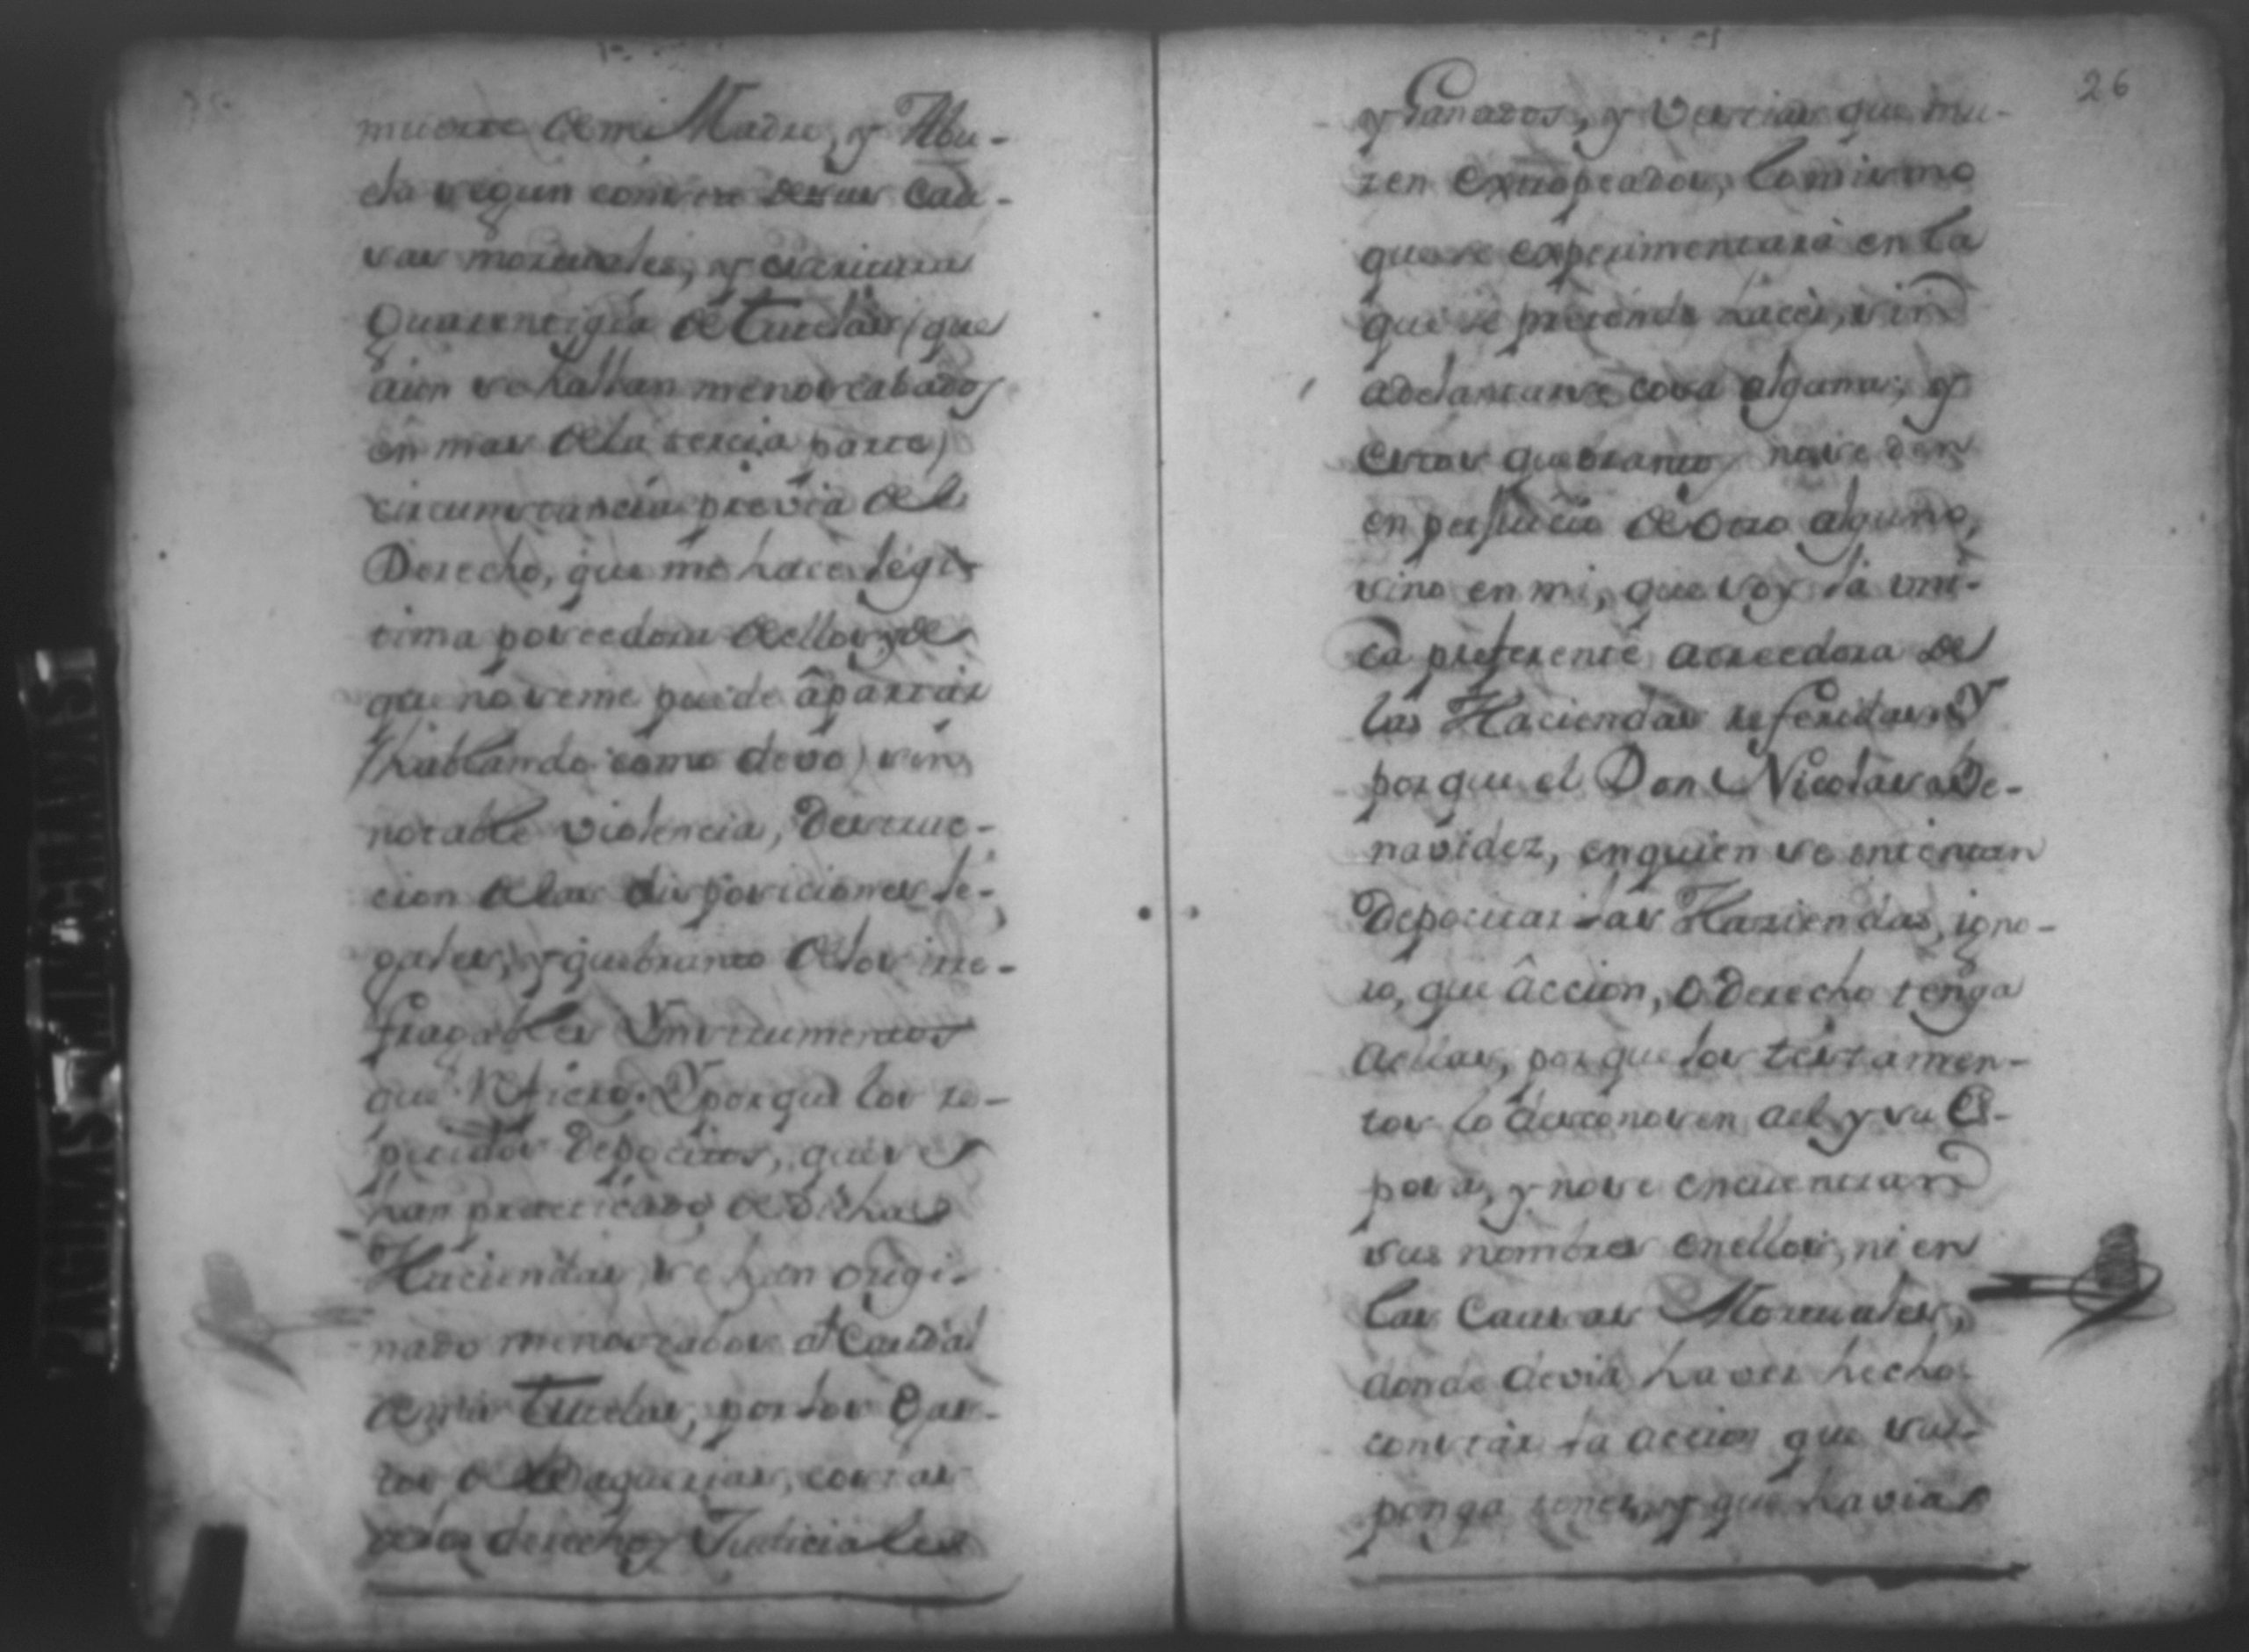 muerte de mi Madre, y Abu-
ela segun consta de sus Cau-
sas mortuales, y escritura
Quarentigia de tutelas (que
aun se hallan menoscabados
en mas de la tercia parte)
circumstancia previa del
Derecho, que me hace legi-
tima poseedora de ellos, de
que no se me puede âpartar
(hablando como devo) sin
notable violencia, Destruc-
cion de las disposiciones le-
gales, y quebranto de los irre-
fragables Ynstrumentos
que refiero. Y porque los re-
petidos Depocitos, que se
han practicado de dichas
Haciendas, se han origi-
nado menoscabos al Caudal
de mis Tutelas, por los Gas-
tos de Vaquerias, costas
de los derechos Judiciales
26
y Ganados, y Vestias que mu-
ren extropeados, lo mismo
que se experimentarà en la
que se pretende hacer, sin
adelantarse cosa alguna; y
estos quebrantos no se den
en perjuicio de otro alguno,
sino en mi, que soy la uni-
ca preferente acreedora de
las Haciendas referidas. Y
porque el Don Nicolas de Be-
navidez, en quien se intentan
Depocitar las Haziendas, igno-
ro, que âccion, o Derecho tenga
a ellas, porque los testamen-
tos lo desconosen a el y su Es-
posa, y no se encuentran
sus nombres en ellos, ni en
las Causas Mortuales,
donde devia haver hecho
constàr la accion que sus-
ponga tener, y que havia